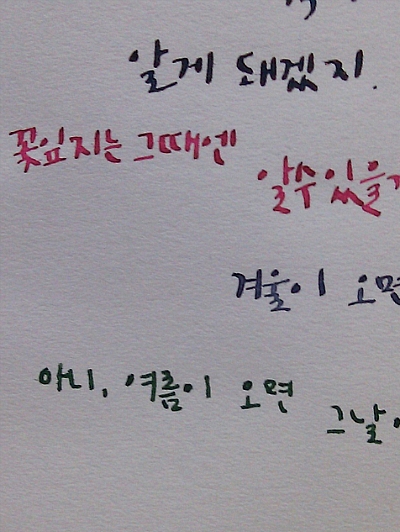 알게 돼겠지.
꽃잎지는 그때엔
알수있을
겨울이 오면
아니, 여름이 오면
그날